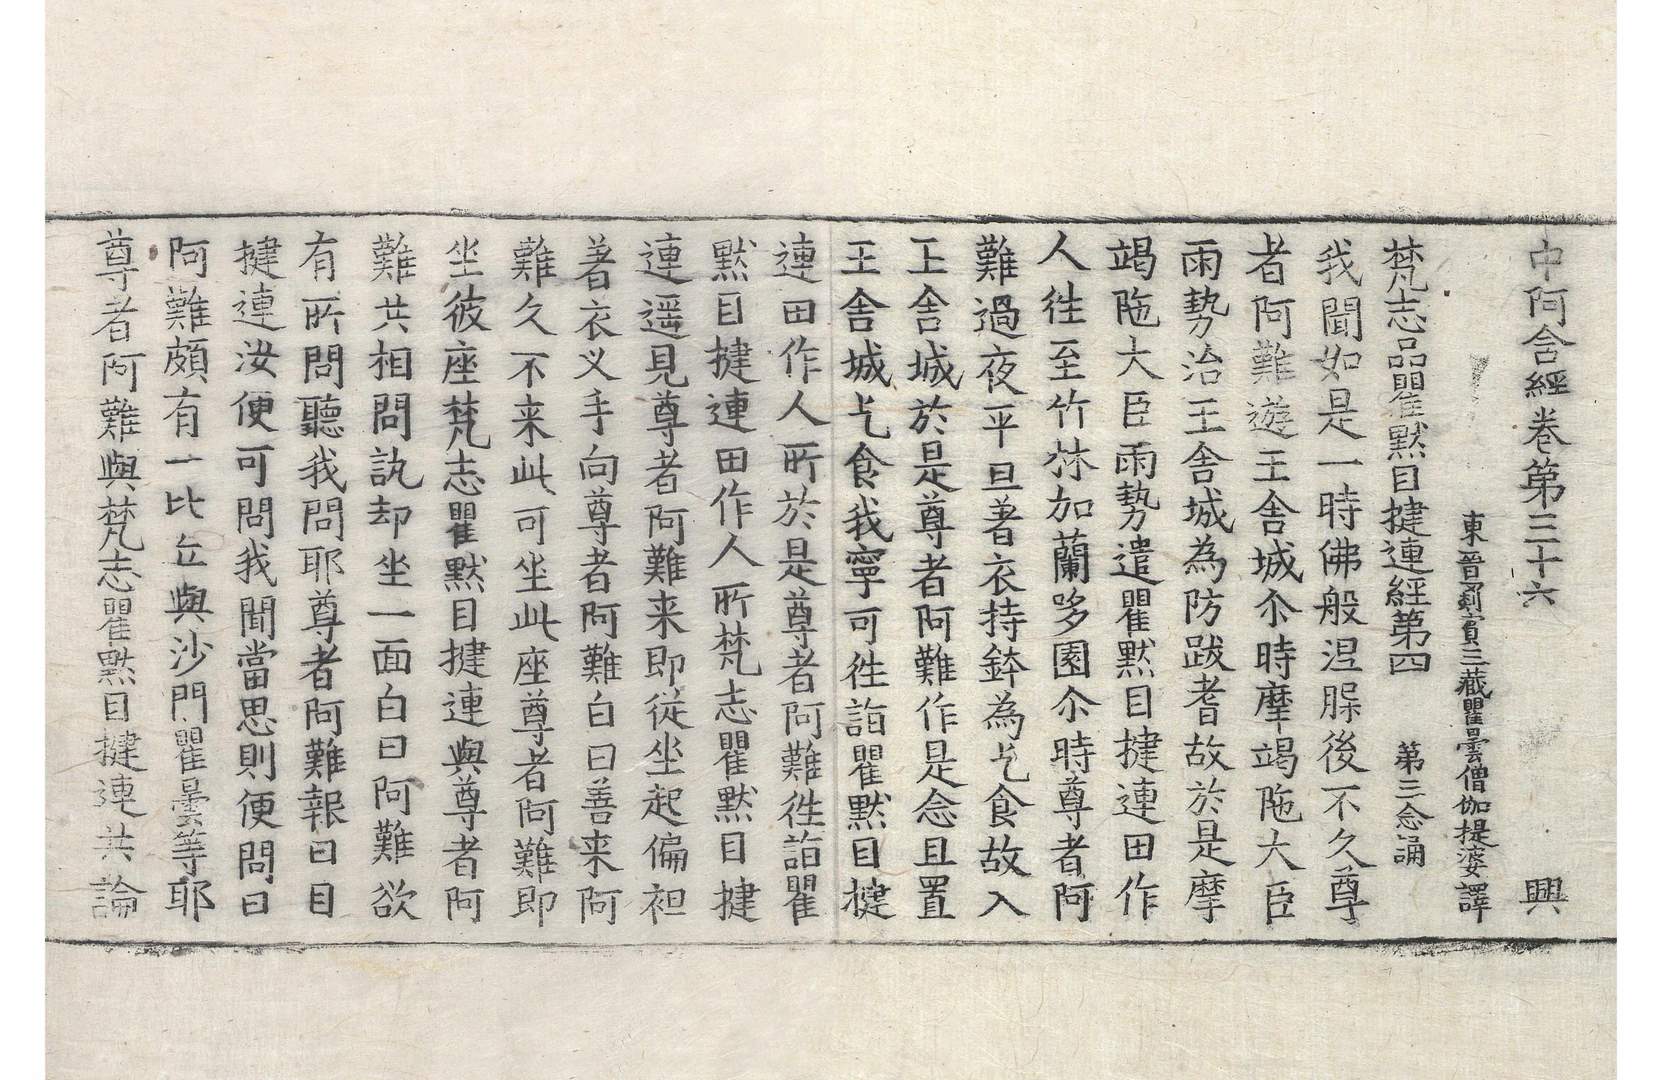 中阿含經卷第三十六 興
東晉罽賓三藏瞿曇僧伽提婆譯
梵志品瞿默目揵連經第四 第三念誦
我聞如是一時佛般涅槃後不久尊
者阿難遊王舍城尒時摩竭陁大臣
雨勢治王舍城為防跋耆故於是摩
竭陁大臣雨勢遣瞿默目揵連田作
人徃至竹林加蘭哆園尒時尊者阿
難過夜平旦著衣持鉢為乞食故入
王舍城於是尊者阿難作是念且置
王舍城乞食我寧可徃詣瞿默目揵
連田作人所於是尊者阿難徃詣瞿
默目揵連田作人所梵志瞿默目揵
連遥見尊者阿難来即從坐起偏袒
著衣叉手向尊者阿難白曰善来阿
難久不来此可坐此座尊者阿難即
坐彼座梵志瞿默目揵連與尊者阿
難共相問訊却坐一面白曰阿難欲
有所問聽我問耶尊者阿難報曰目
揵連汝便可問我聞當思則便問曰
阿難頗有一比丘與沙門瞿曇等耶
尊者阿難與梵志瞿默目揵連共論